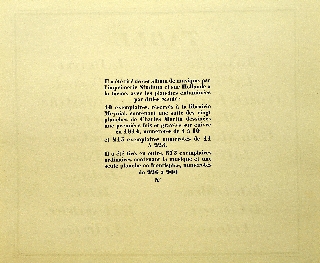 Il a été tiré de cet album de musique par
l'imprimerie Studium et sur Hollande
la forme avec les planches enluminées
par
10 exemplaires, réservés à la librairie
Meynial, contenant une suite des vingt
planches de Charles Martin dessinées
une première fois et gravées sur cuivre
en 1914, numérotés de 1 à 10
et 215 exemplaires numérotés de 11
à 225.
Il a été tiré en outre 675 exemplaires
ordinaires contenant la musique et une
seule planche en frontispice, numérotés
de 226 à 900
N°